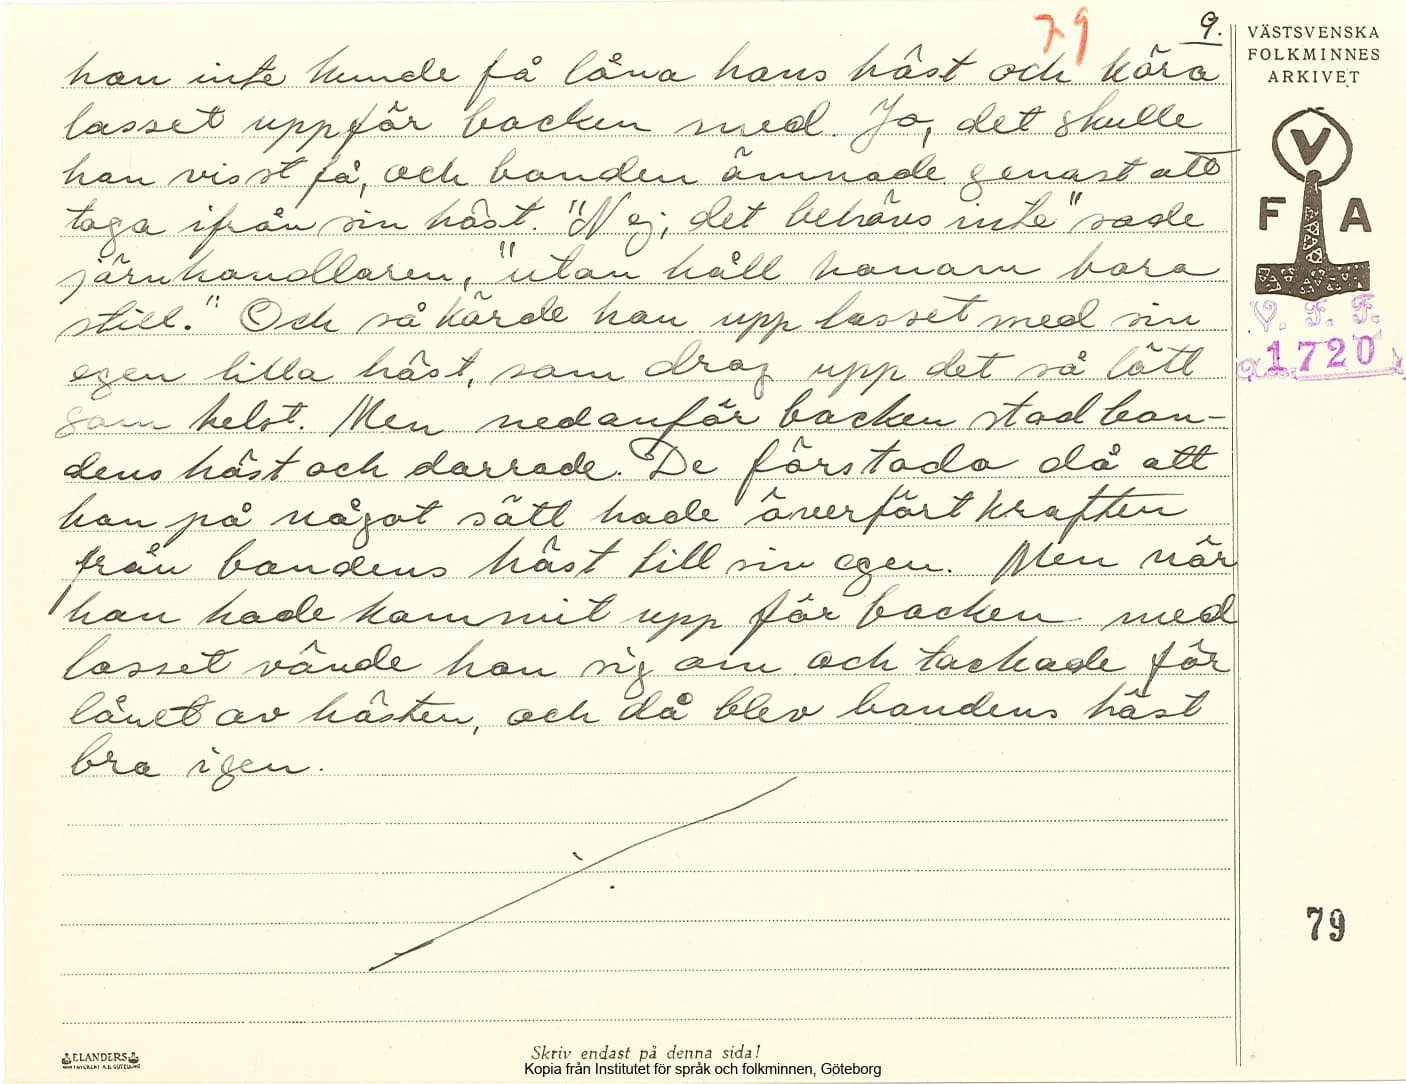 79
9.
han inte kunde få låna hans häst och köra
lasset uppför backen med. Jo, det skulle
han visst få, och bonden ämnade genast att
taga ifrån sin häst. "Nej, det behövs inte" sade
järnhandlaren, "utan håll honom bara
still." Och så körde han upp lasset med sin
egen lilla häst, som drog upp det så lätt
som helst. Men nedanför backen stod bon-
dens häst och darrade. De förstodo då att
han på något sätt hade överfört kraften
från bondens häst till sin egen. Men när
han hade kommit upp för backen med
lasset vände han sig om och tackade för
lånet av hästen, och då blev bondens häst
bra igen.
VÄSTSVENSKA
FOLKMINNES
ARKIVET
V
F A
V. F. F.
1720
79
ELANDERS
Skriv endast på denna sida!
Kopia från Institutet för språk och folkminnen, Göteborg